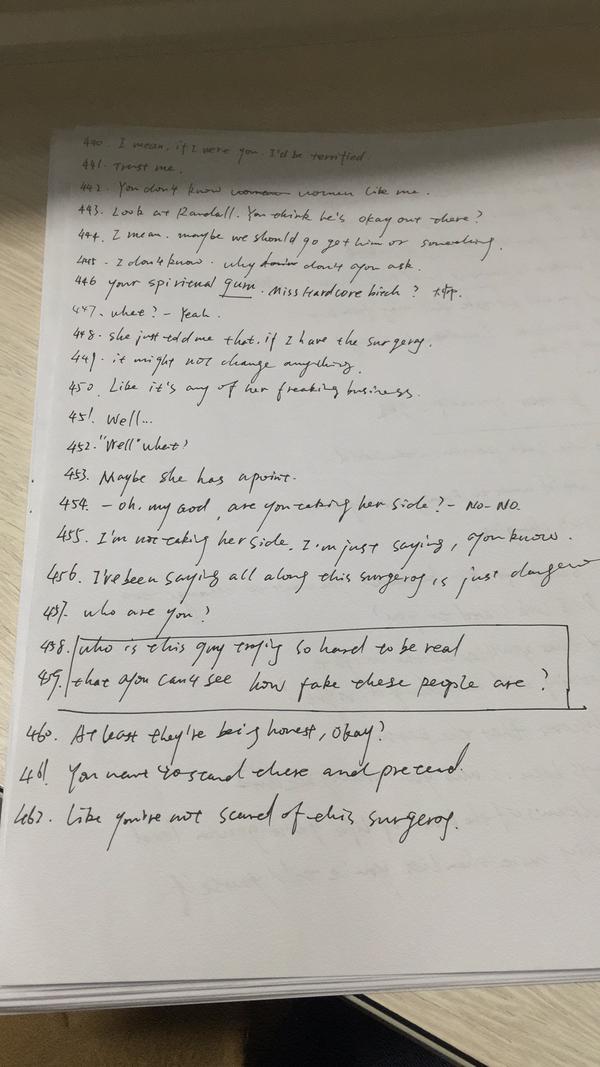 440. I mean, if I were you. I'd be terrified
441. Trust me.
442. You don't know women like me.
443. Look at Randall. You think he's okay out there?
444. I mean. maybe we should go get him or something.
445. I don't know. why don't you ask.
446 your spiritual gum. Miss Hardcore bitch?
447. what? - Yeah.
448. she just told me that. if I have the surgery.
449. it might not change anything.
450. Like it's any of her freaking business.
451. Well...
452. "Well" what?
453. Maybe she has a point.
454. - Oh. my God, are you taking her side? - No - No.
455. I'm not taking her side. I'm just saying, you know.
456. I've been saying all along this surgery is just danger
457. who are you?
458. who is this guy trying so hard to be real
459. that you can't see how fake these people are?
460. At least they're being honest, okay?
461 You want to stand there and pretend.
462. Like you're not scared of this surgery.